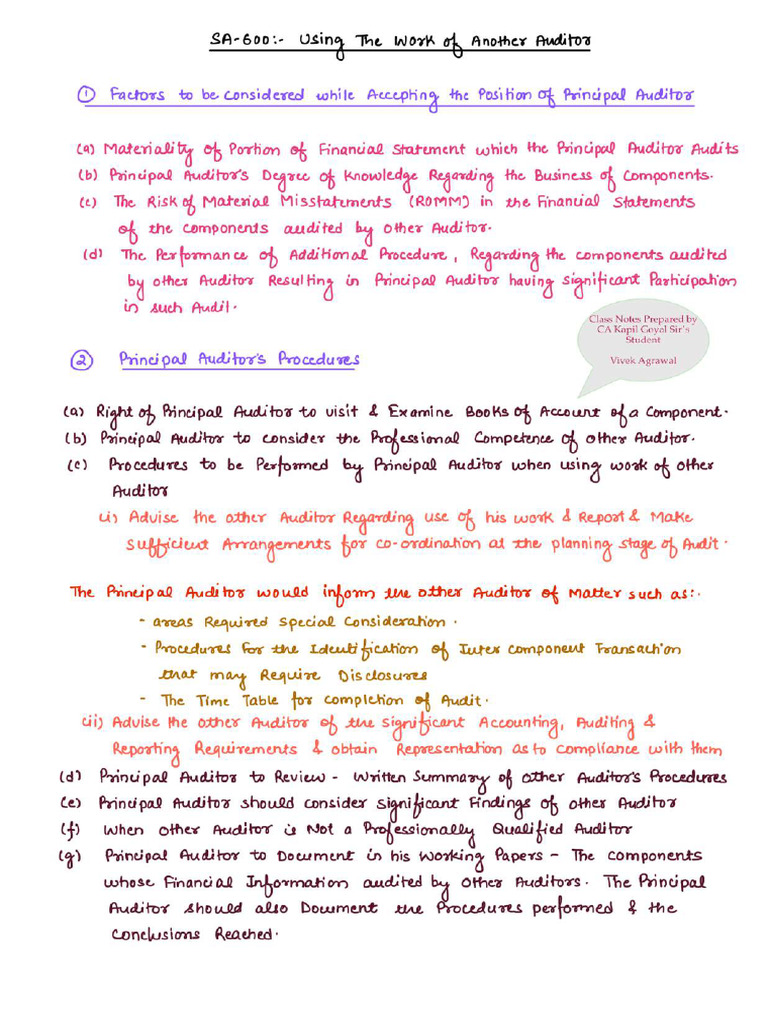 SA-600:- Using The Work of Another Auditor
① Factors to be Considered while Accepting the Position of Principal Auditor
(a) Materiality of Portion of Financial Statement which the Principal Auditor Audits
(b) Principal Auditor's Degree of Knowledge Regarding the Business of Components.
(c) The Risk of Material Misstatements (ROMM) in the Financial Statements
of the components audited by other Auditor.
(d) The Performance of Additional Procedure, Regarding the components audited
by other Auditor Resulting in Principal Auditor having significant Participation
in such Audit.
Class Notes Prepared by
CA Kapil Goyal Sir's
Student
Vivek Agrawal
② Principal Auditor's Procedures
(a) Right of Principal Auditor to visit & Examine Books of Account of a Component.
(b) Principal Auditor to consider the Professional Competence of other Auditor.
(c) Procedures to be Performed by Principal Auditor when using work of other
Auditor
(i) Advise the other Auditor Regarding use of his work & Report & Make
sufficient Arrangements for co-ordination at the planning stage of Audit.
The Principal Auditor would inform the other Auditor of Matter such as:.
- areas Required special Consideration.
- Procedures for the Identification of Inter component Transaction
that may Require Disclosures
- The Time Table for completion of Audit.
(ii) Advise the other Auditor of the significant Accounting, Auditing &
Reporting Requirements & obtain Representation as to compliance with them
(d) Principal Auditor to Review - Written Summary of other Auditor's Procedures
(e) Principal Auditor should consider significant Findings of other Auditor
(f) When other Auditor is Not a Professionally Qualified Auditor
(g) Principal Auditor to Document in his Working Papers - The components
whose Financial Information audited by other Auditors. The Principal
Auditor should also Document the Procedures performed & the
Conclusions Reached.